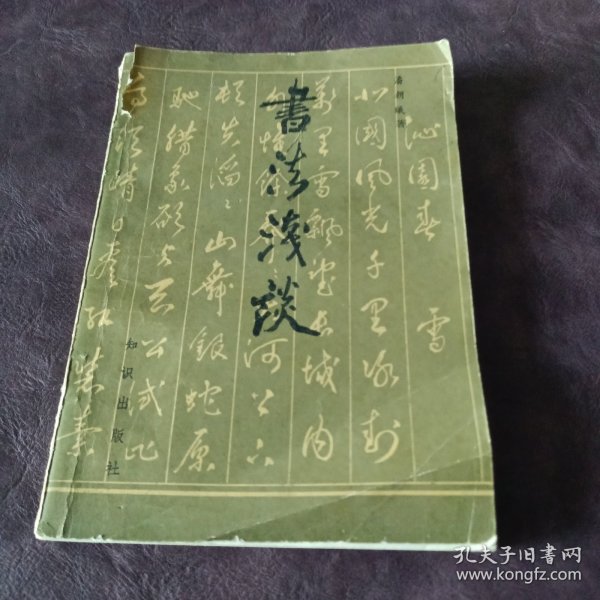 書法淺談
潘朝曦著
沁園春 雪
北國風光千里冰封
萬里雪飄望長城內
外惟餘莽莽大河上下
頓失滔〻山舞銀蛇原
馳腊象欲与天公試比
高須晴日看紅裝素
知识出版社
孔夫子旧书网
www.kongfz.com